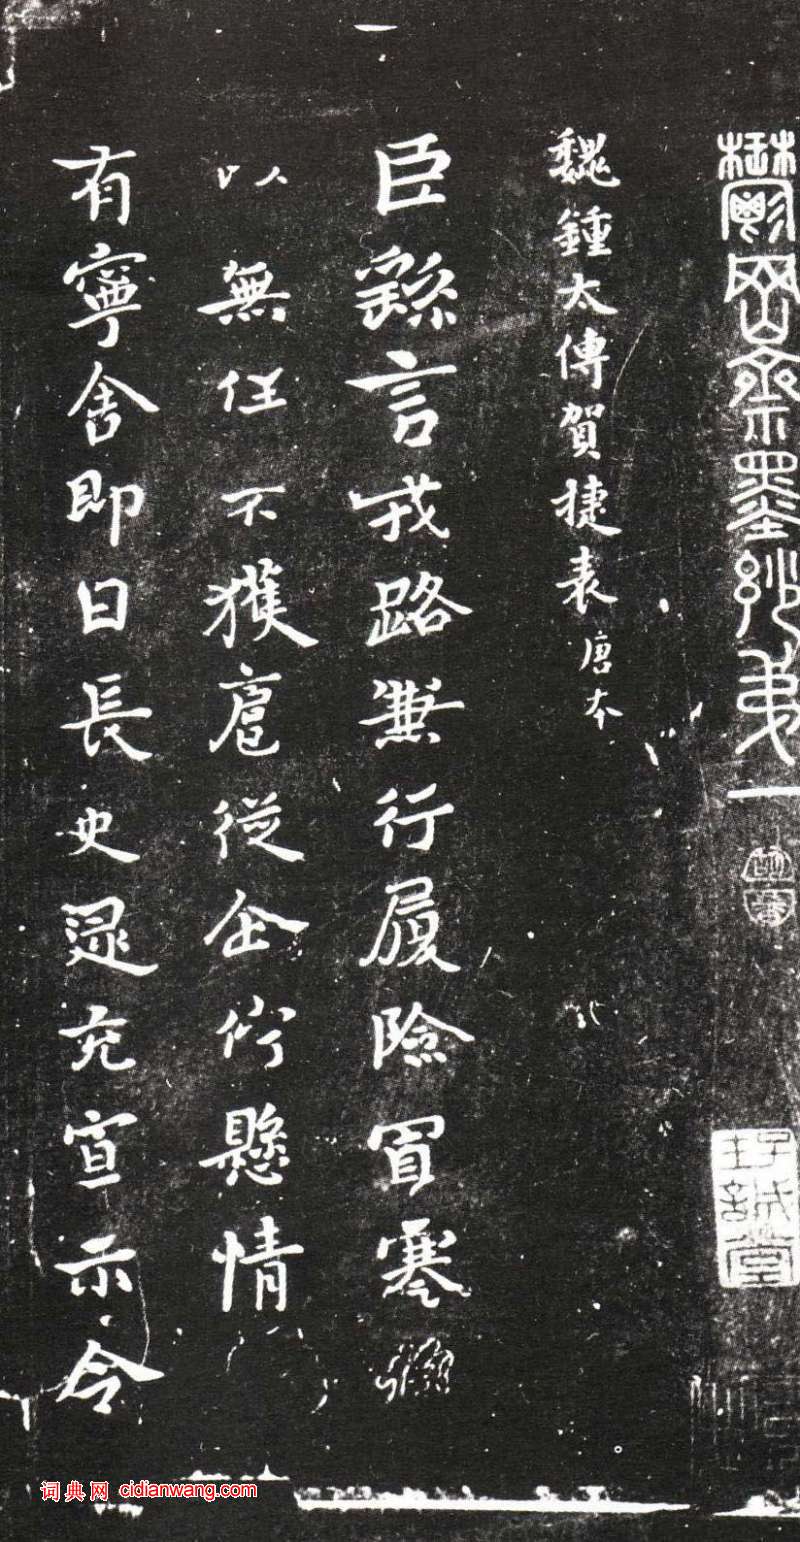 鬱岡齋墨玅第一
魏鍾太傅賀捷表 唐本
臣繇言戎路兼行履險冒寒
以無任不獲扈從企佇懸情
有寧舍即日長史逯充宣示令
词典网 cidianwang.com